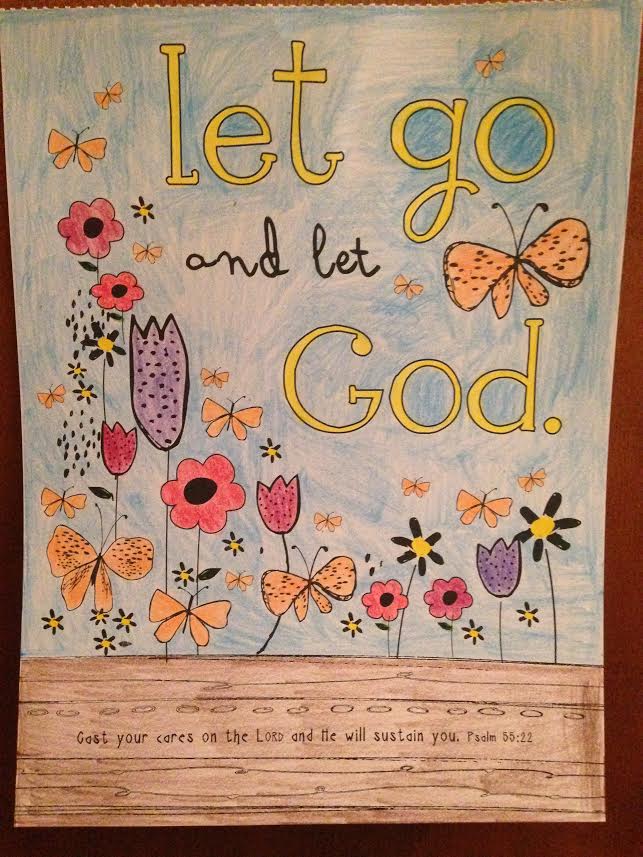 let go
and let
God.
Cast your cares on the LORD and He will sustain you. Psalm 55:22